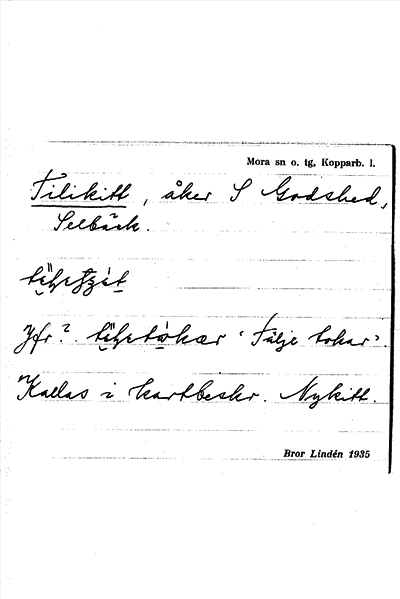 Mora sn o. tg, Kopparb. l.
Tilikitt, åker S Godshed,
Selbäck.
Jfr? 'Tälje tokar'.
Kallas i kartbeskr. Nykitt.
Bror Lindén 1935